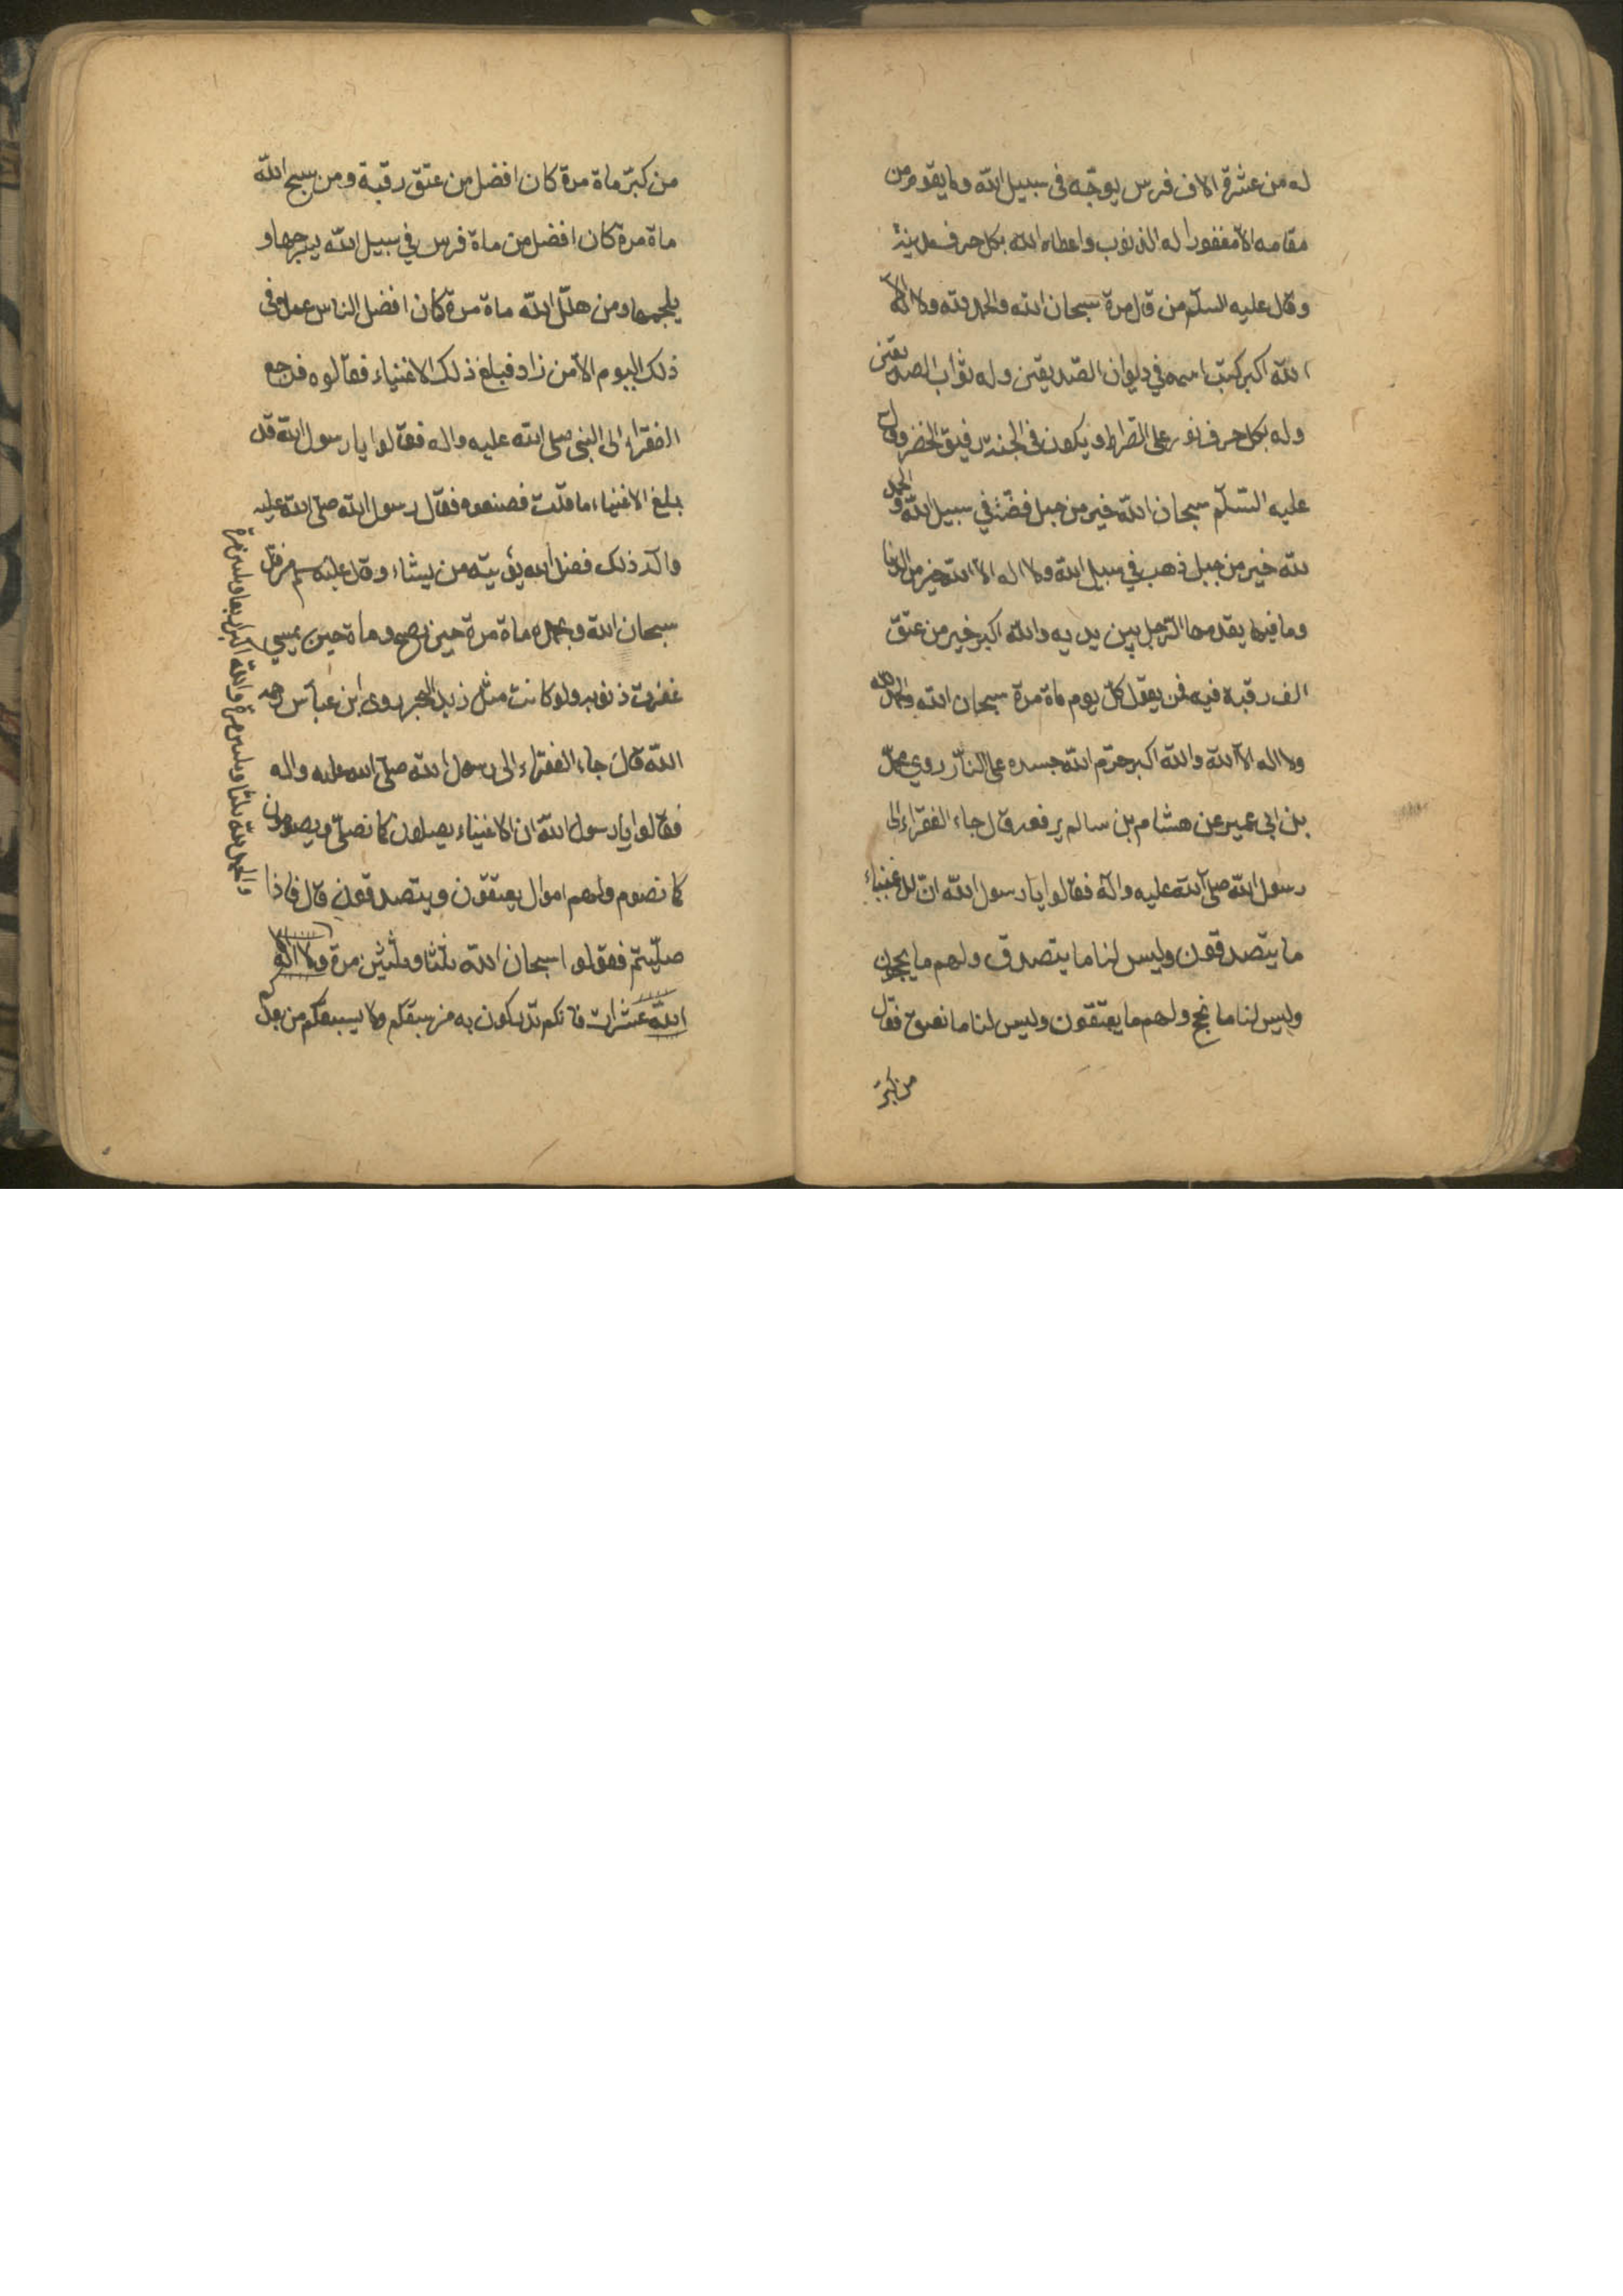 له من عشرة الاف فرس يوجّه فى سبيل الله وما يقوم من
مقامه الا مغفورا له الذنوب واعطاه الله بكل حرف مدينة
وقال عليه السلم من قال مرة سبحان الله والحمد لله ولا اله الا
الله اكبر كتب اسمه في ديوان الصديقين وله ثواب الصديقين
وله بكل حرف نور على الصراط ويكون فى الجنة رفيق الخضر وقال
عليه السّلم سبحان الله خير من جبل فضّة في سبيل الله و الحمد
لله خير من جبل ذهب في سبيل الله ولا اله الا الله خير من الدنيا
وما فيها يقدمها الرّجل بين يديه والله اكبر خير من عتق
الف رقبة فيه فمن يعقل كلّ يوم ماة مرة سبحان الله والحمد لله
ولا اله الا الله والله اكبر حرّم الله جسده على النّار روي محمّد
بن ابي عمير عن هشام بن سالم يرفعه قال جاء الفقراء الى
رسول الله صلى الله عليه واله فقالوا يا رسول الله انّ للاغنياء
ما يتصدقون وليس لنا ما يتصدق ولهم ما يحجون
وليس لنا ما نحج ولهم ما يعتقون وليس لنا ما نعتق فقال
من كبّر
من كبّر ماة مرة كان افضل من عتق رقبة ومن سبح الله
ماة مرة كان افضل من ماة فرس في سبيل الله يسرجها و
يلجمها ومن هلّل الله ماة مرة كان افضل الناس عملا فى
ذلك اليوم الا من زاد فبلغ ذلك الاغنياء فقالوه فرجع
الفقراء الى النبى صلى الله عليه واله فقالوا يا رسول الله قد
بلغ الاغنياء ما قلت فصنعوه فقال رسول الله صلى الله عليه
واله ذلك فضل الله يؤتيه من يشاء وقال عليه سلم من قال
سبحان الله وبحمده ماة مرة حين يصبح وماة حين يمسي
غفرت ذنوبه ولو كانت مثل زبد البحر روى ابن عباس رحمه
الله قال جاء الفقراء الى رسول الله صلى الله عليه واله
فقالوا يا رسول الله ان الاغنياء يصلون كما نصلّى ويصومون
كما نصوم ولهم اموال يعتقون ويتصدقون قال فاذا
صلّيتم فقولوا سبحان الله ثلثا وثلثين مرة ولا اله الا
الله عشرات فانكم تدركون به من سبقكم ولا يسبقكم من بعدكم
والحمد لله ثلثا وثلثين مرة والله اكبر اربعا وثلثين مرة